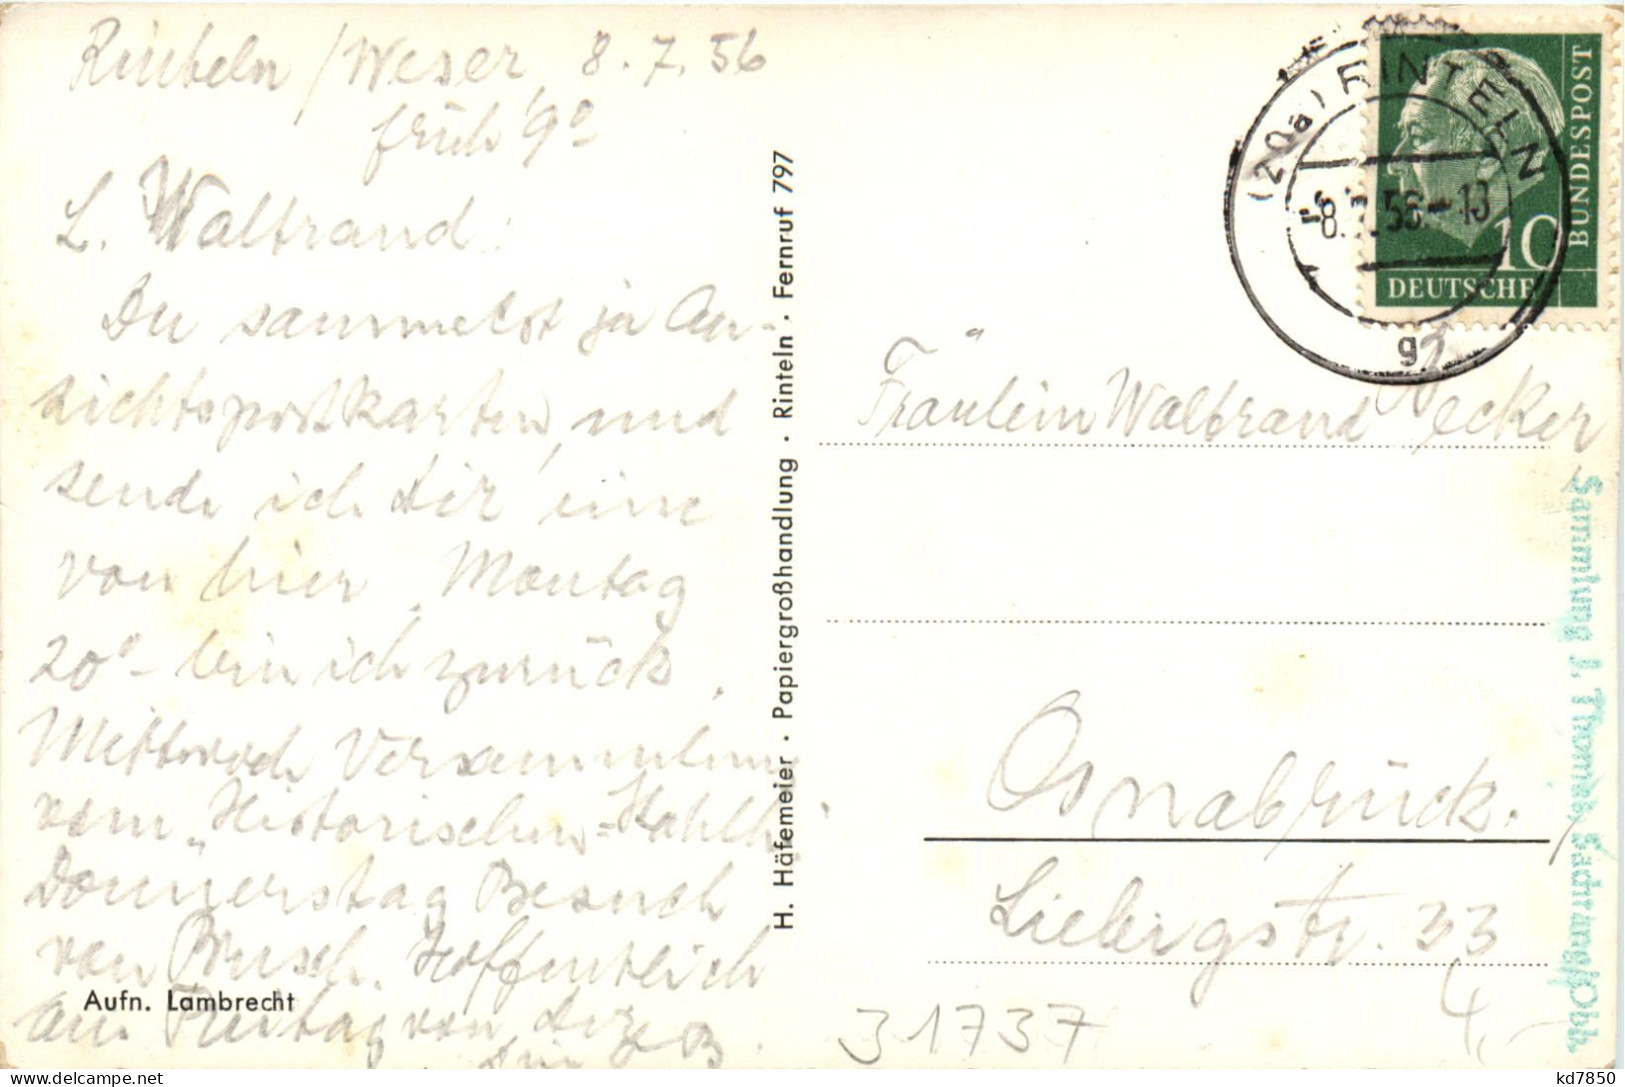 Rinteln / Weser, 8.7.56
früh 9°
L. Waltraud.
Du sammelst ja An-
sichtspostkarten, und
sende ich dir eine
von hier. Montag
20°- bin ich zurück.
Mittwoch Versammlung
vom "Historischen-
Donnerstag Besuch
von Busch. Hoffentlich
am Freitag von dir
Aufn. Lambrecht
H. Häfemeier · Papiergroßhandlung · Rinteln · Fernruf 797
(20a) RINTELN
8.7.56.-13
g
DEUTSCHE
BUNDESPOST
10
Fräulein Waltraud Becker
Osnabrück.
Liebigstr. 33
31737
4,-
Sammlung J. Thomas,
kd7850